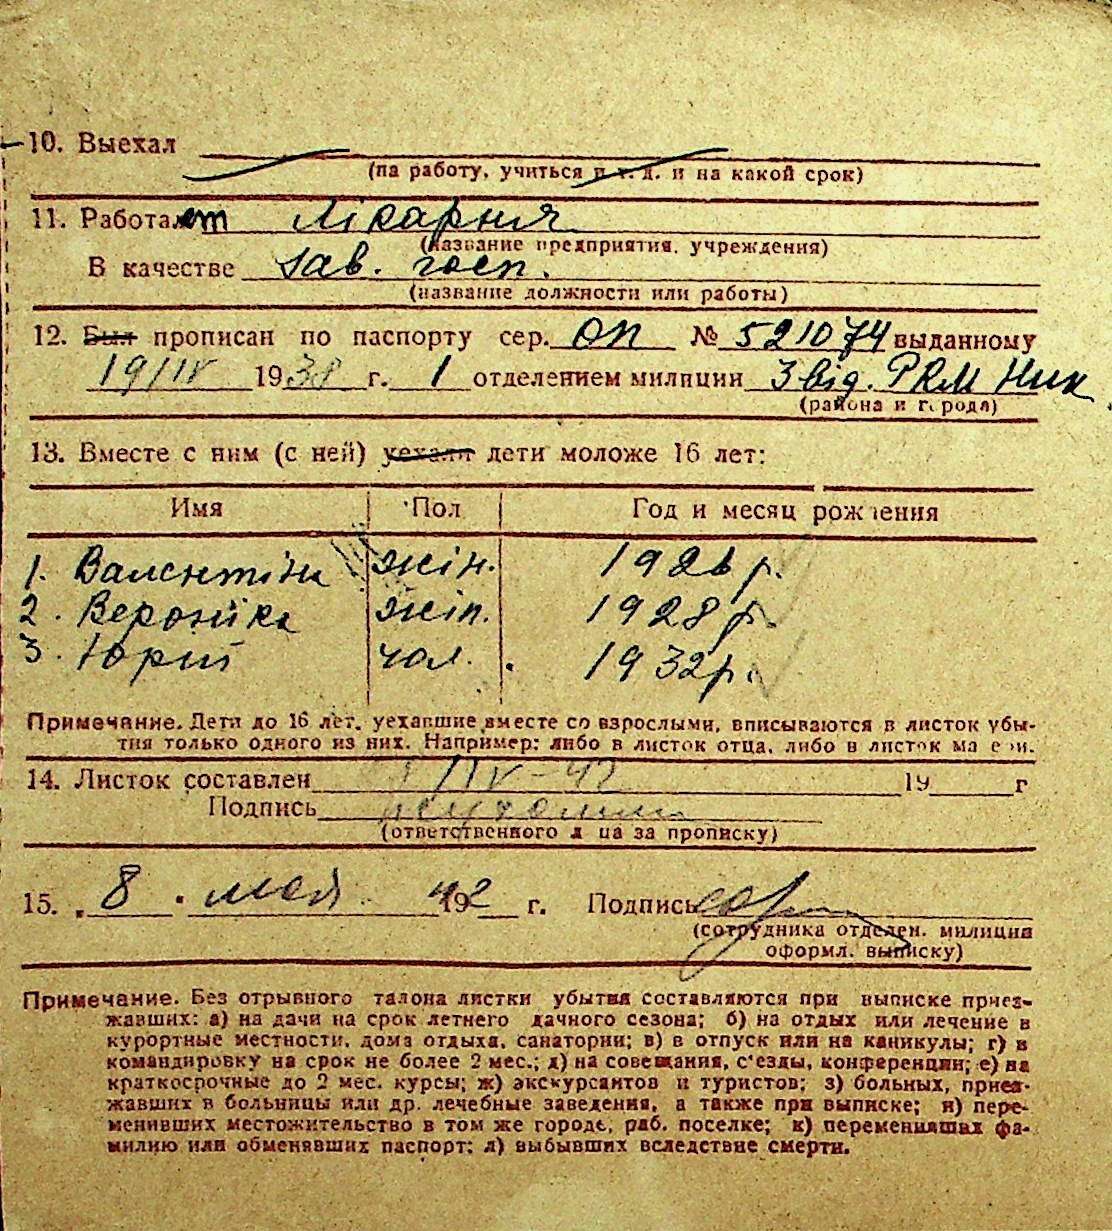 10. Выехал
(на работу, учиться и т. д. и на какой срок)
11. Работает Лікарня
(название предприятия, учреждения)
В качестве зав. госп.
(название должности или работы)
12. Был прописан по паспорту сер. ОП № 521074 выданному
19/IV 1938 г. 1 отделением милиции 3 від. РКМ Ник
(района и города)
13. Вместе с ним (с ней) уехали дети моложе 16 лет:
Имя Пол Год и месяц рождения
1. Валентіна жін. 1926 р.
2. Вероніка жін. 1928 р.
3. Юрій чол. 1932 р.
Примечание. Дети до 16 лет, уехавшие вместе со взрослыми, вписываются в листок убы-
тия только одного из них. Например: либо в листок отца, либо в листок матери.
14. Листок составлен /IV-42 19 г
Подпись
(ответственного лица за прописку)
15. 8 мая 1942 г. Подпись
(сотрудника отделен. милиции
оформл. выписку)
Примечание. Без отрывного талона листки убытия составляются при выписке приез-
жавших: а) на дачи на срок летнего дачного сезона; б) на отдых или лечение в
курортные местности, дома отдыха, санатории; в) в отпуск или на каникулы; г) в
командировку на срок не более 2 мес.; д) на совещания, с'езды, конференции; е) на
краткосрочные до 2 мес. курсы; ж) экскурсантов и туристов; з) больных, приез-
жавших в больницы или др. лечебные заведения, а также при выписке; и) пере-
менивших местожительство в том же городе, раб. поселке; к) переменивших фа-
милию или обменявших паспорт; л) выбывших вследствие смерти.